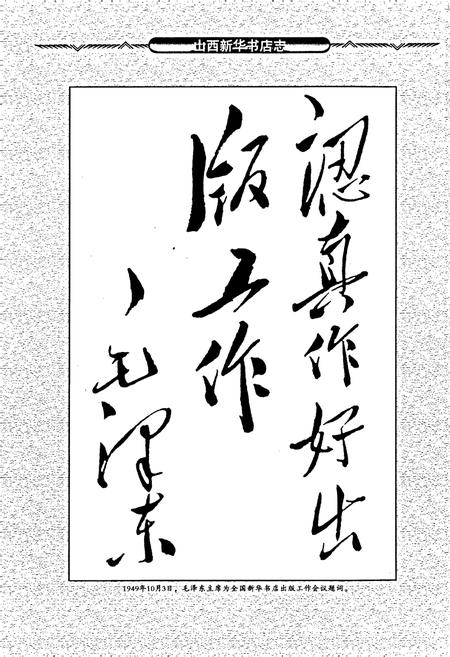 山西新华书店志
認真作好出
版工作
毛澤东
1949年10月3日，毛泽东主席为全国新华书店出版工作会议题词。